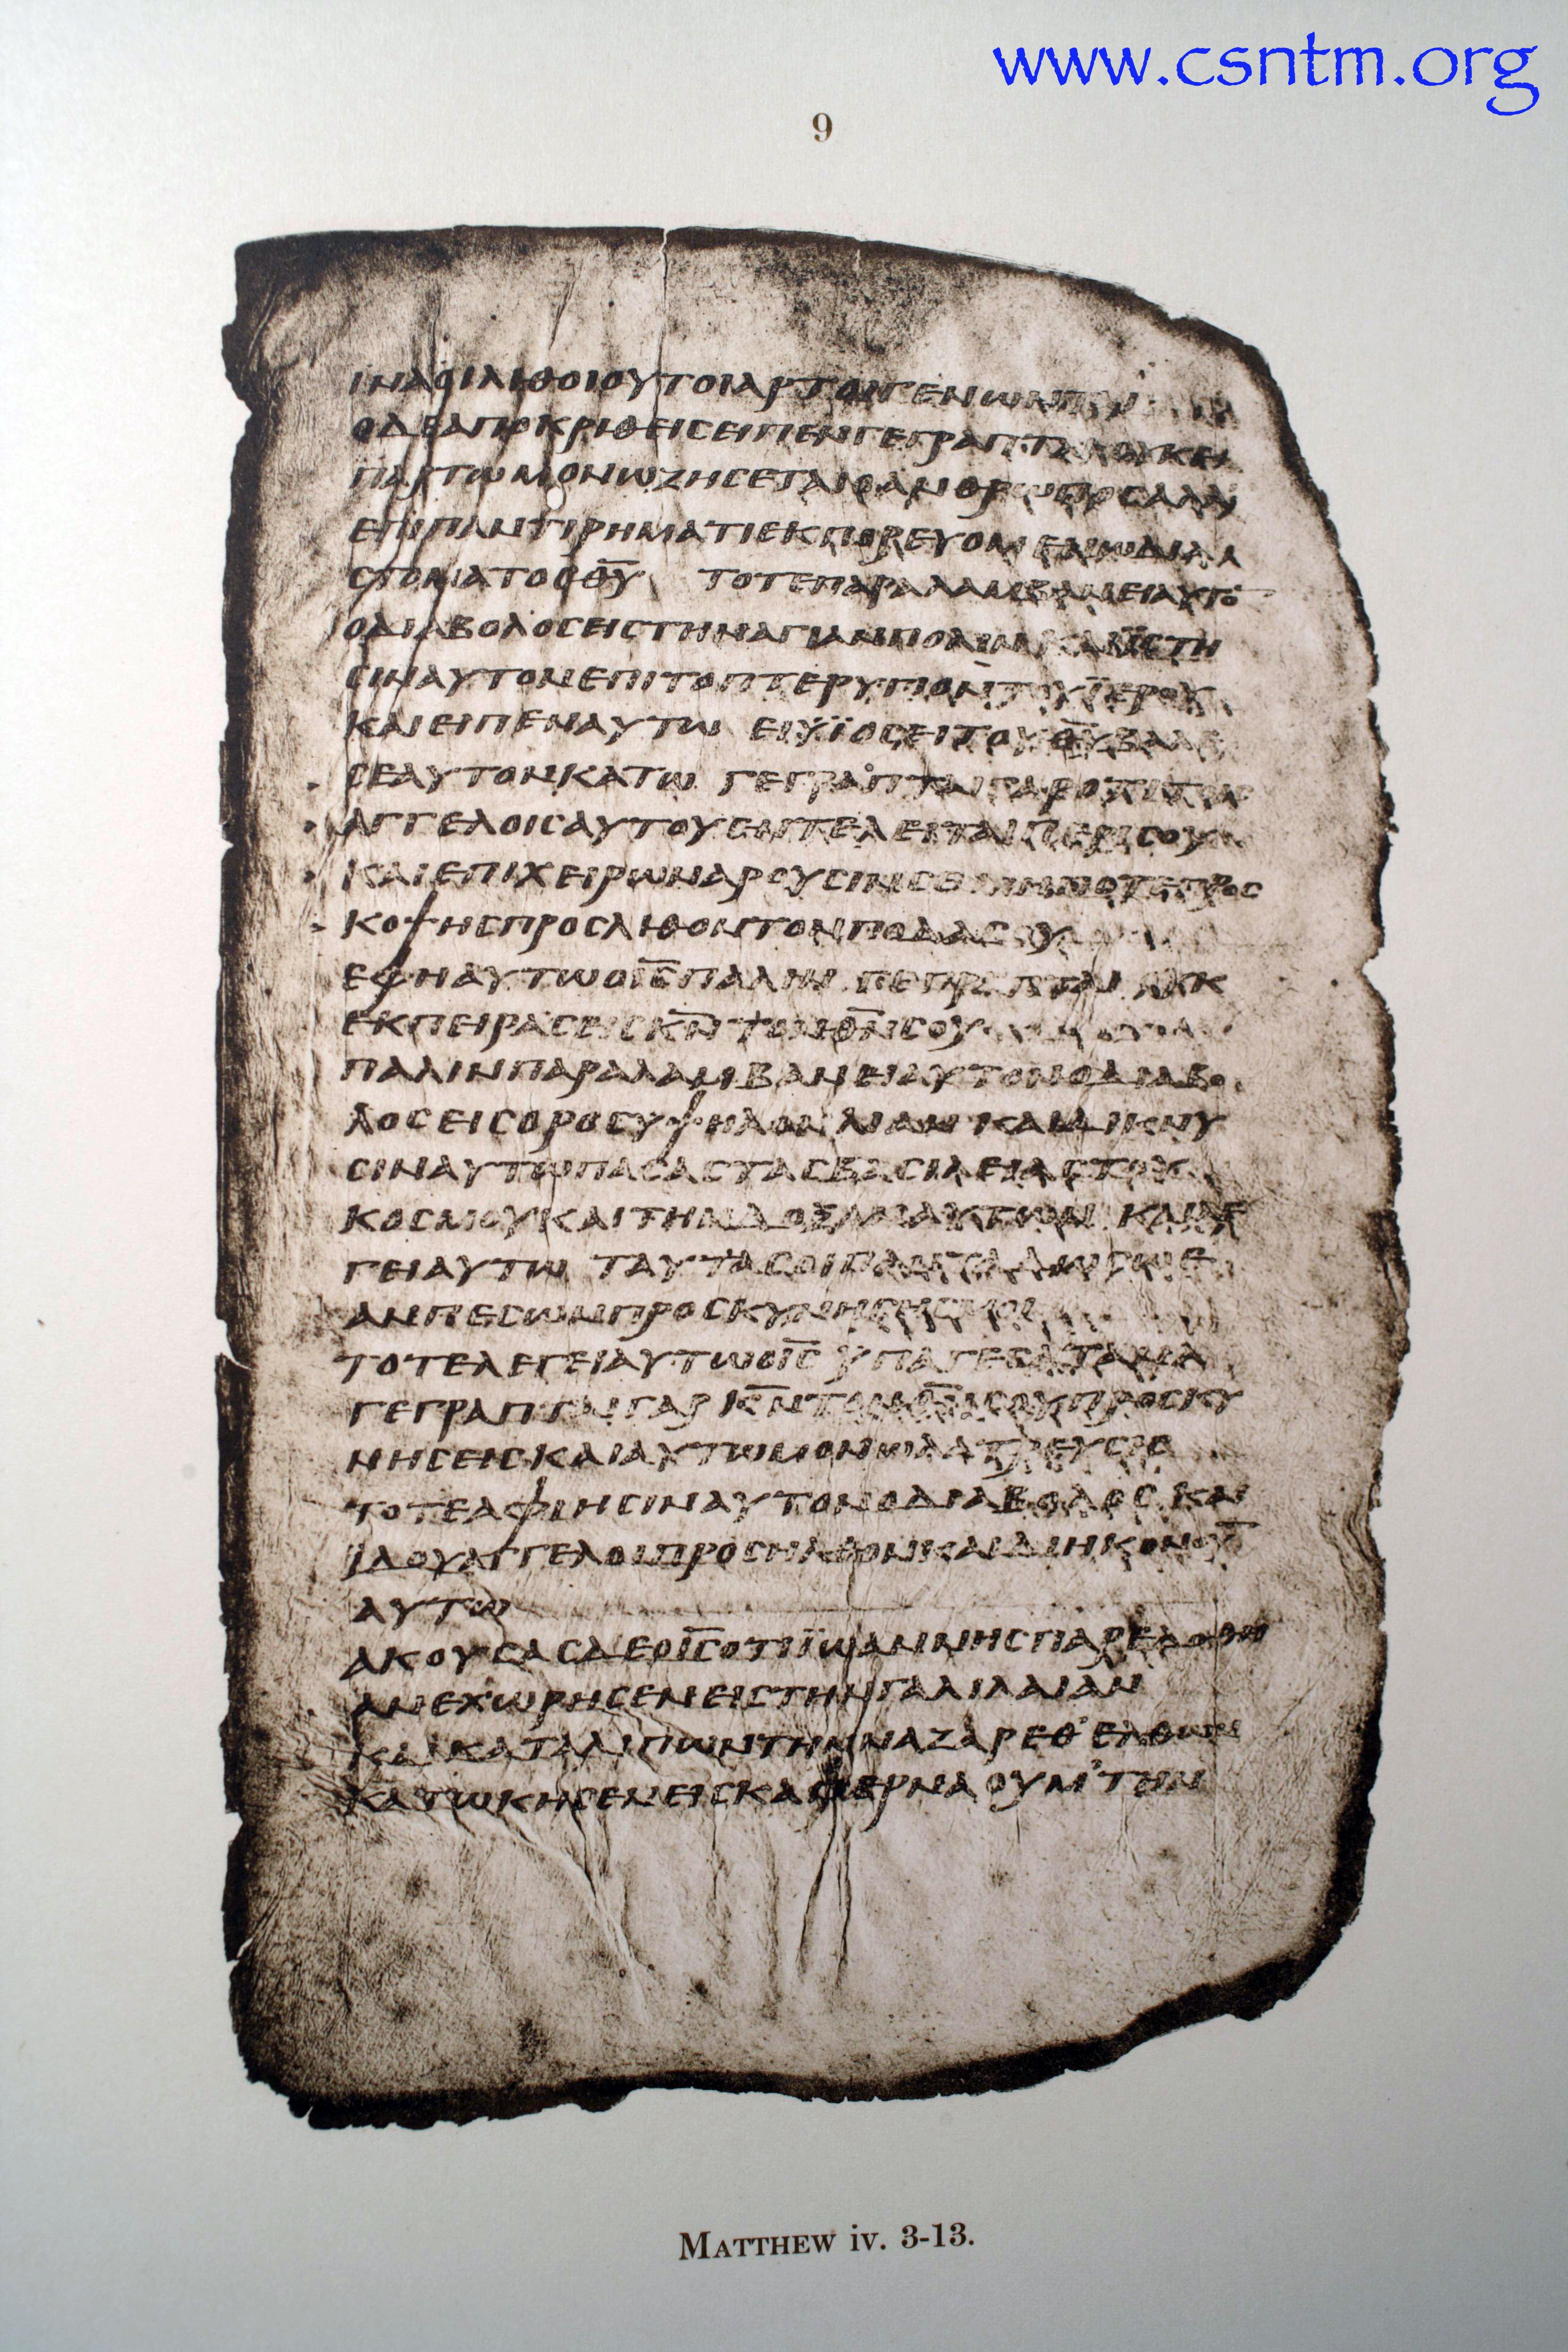 www.csntm.org
9
ΙΝΑΟΙΛΙΘΟΙΟΥΤΟΙΑΡΤΟΙΓΕΝΩΝΤΑΙ
ΟΔΕΑΠΟΚΡΙΘΕΙΣΕΙΠΕΝΓΕΓΡΑΠΤΑΙΟΥΚΕΝ
ΑΡΤΩΜΟΝΩΖΗСΕΤΑΙΟΑΝΟΣ
ΕΠΙΠΑΝΤΙΡΗΜΑΤΙΕΚΠΟΡΕΥΟΜΕΝΩΔΙΑ
СΤΟΜΑΤΟСΘ̅Υ̅ ΤΟΤΕΠΑΡΑΛΑΜΒΑΝΕΙΑΥΤΟ̅
ΟΔΙΑΒΟΛΟСΕΙСΤΗΝΑΓΙΑΝΠΟΛΙΝΚΑΙΪСΤΗ
СΙΝΑΥΤΟΝΕΠΙΤΟΠΤΕΡΥΓΙΟΝΤΟΥΪΕΡΟΥ
ΚΑΙΕΙΠΕΝΑΥΤΩ ΕΙΫΪΟСΕΙΤΟΥΘ̅Υ̅ΒΑΛΕ
СΕΑΥΤΟΝΚΑΤΩ ΓΕΓΡΑΠΤΑΙΓΑΡΟΤΙΤΟΙС
ΑΓΓΕΛΟΙСΑΥΤΟΥΕΝΤΕΛΕΙΤΑΙΠΕΡΙСΟΥ
ΚΑΙΕΠΙΧΕΙΡΩΝΑΡΟΥСΙΝСΕΜΗΠΟΤΕΠΡΟС
ΚΟΨΗСΠΡΟСΛΙΘΟΝΤΟΝΠΟΔΑСΟΥ
ΕΦΗΑΥΤΩΟΙ̅С̅ΠΑΛΙΝ ΓΕΓΡΑΠΤΑΙ ΟΥΚ
ΕΚΠΕΙΡΑСΕΙСΚ̅Ν̅ΤΟΝΘ̅Ν̅СΟΥ
ΠΑΛΙΝΠΑΡΑΛΑΜΒΑΝΕΙΑΥΤΟΝΟΔΙΑΒΟ
ΛΟСΕΙСΟΡΟСΥΨΗΛΟΝΛΙΑΝΚΑΙΔΙΚΝΥ
СΙΝΑΥΤΩΠΑСΑСΤΑСΒΑСΙΛΕΙΑСΤΟΥ
ΚΟСΜΟΥΚΑΙΤΗΝΔΟΞΑΝΑΥΤΩΝ ΚΑΙΛΕ
ΓΕΙΑΥΤΩ ΤΑΥΤΑСΟΙΠΑΝΤΑΔΩСΩΕ
ΑΝΠΕСΩΝΠΡΟСΚΥΝΗСΗСΜΟΙ
ΤΟΤΕΛΕΓΕΙΑΥΤΩΟΙ̅С̅ ΥΠΑΓΕСΑΤΑΝΑ
ΓΕΓΡΑΠΤΑΙΓΑΡ Κ̅Ν̅ΤΟΝΘ̅Ν̅СΟΥΠΡΟСΚΥ
ΝΗСΕΙСΚΑΙΑΥΤΩΜΟΝΩΛΑΤΡΕΥСΙС
ΤΟΤΕΑΦΙΗСΙΝΑΥΤΟΝΟΔΙΑΒΟΛΟС ΚΑΙ
ΙΔΟΥΑΓΓΕΛΟΙΠΡΟСΗΛΘΟΝΚΑΙΔΙΗΚΟΝΟΥ̅
ΑΥΤΩ
ΑΚΟΥСΑСΔΕΟΙ̅С̅ΟΤΙΪΩΑΝΝΗСΠΑΡΕΔΟΘΗ
ΑΝΕΧΩΡΗСΕΝΕΙСΤΗΝΓΑΛΙΛΑΙΑΝ
ΚΑΙΚΑΤΑΛΙΠΩΝΤΗΝΝΑΖΑΡΕΘ᾿ΕΛΘΩΝ
ΚΑΤΩΚΗСΕΝΕΙСΚΑΦΕΡΝΑΟΥΜ᾿ΤΗΝ
MATTHEW iv. 3-13.